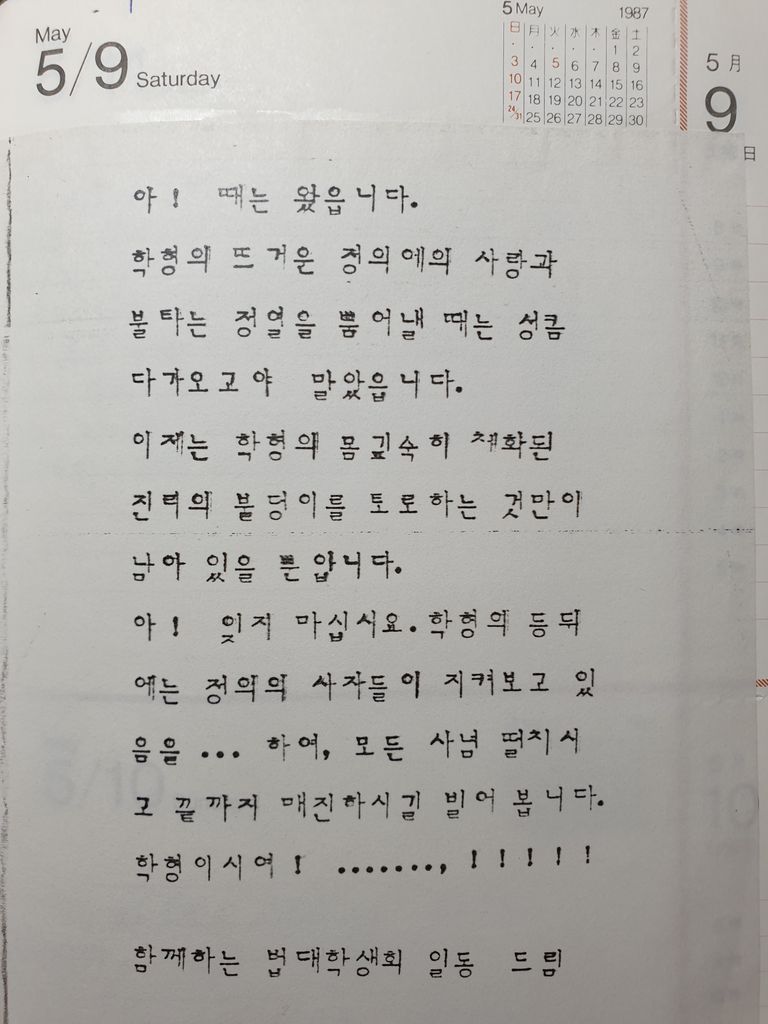 May
5/9 Saturday
5 May 1987
日 月 火 水 木 金 土
· · · · · 1 2
3 4 5 6 7 8 9
10 11 12 13 14 15 16
17 18 19 20 21 22 23
24/31 25 26 27 28 29 30
5月
9
日
아! 때는 왔읍니다.
학형의 뜨거운 정의에의 사랑과
불타는 정열을 뿜어낼 때는 성큼
다가오고야 말았읍니다.
이제는 학형의 몸깊숙히 채화된
진리의 불덩이를 토로하는 것만이
남아 있을 뿐입니다.
아! 잊지 마십시요. 학형의 등뒤
에는 정의의 사자들이 지켜보고 있
음을 ... 하여, 모든 사념 떨치시
고 끝까지 매진하시길 빌어 봅니다.
학형이시여! ......., ! ! ! ! !
함께하는 법대학생회 일동 드림